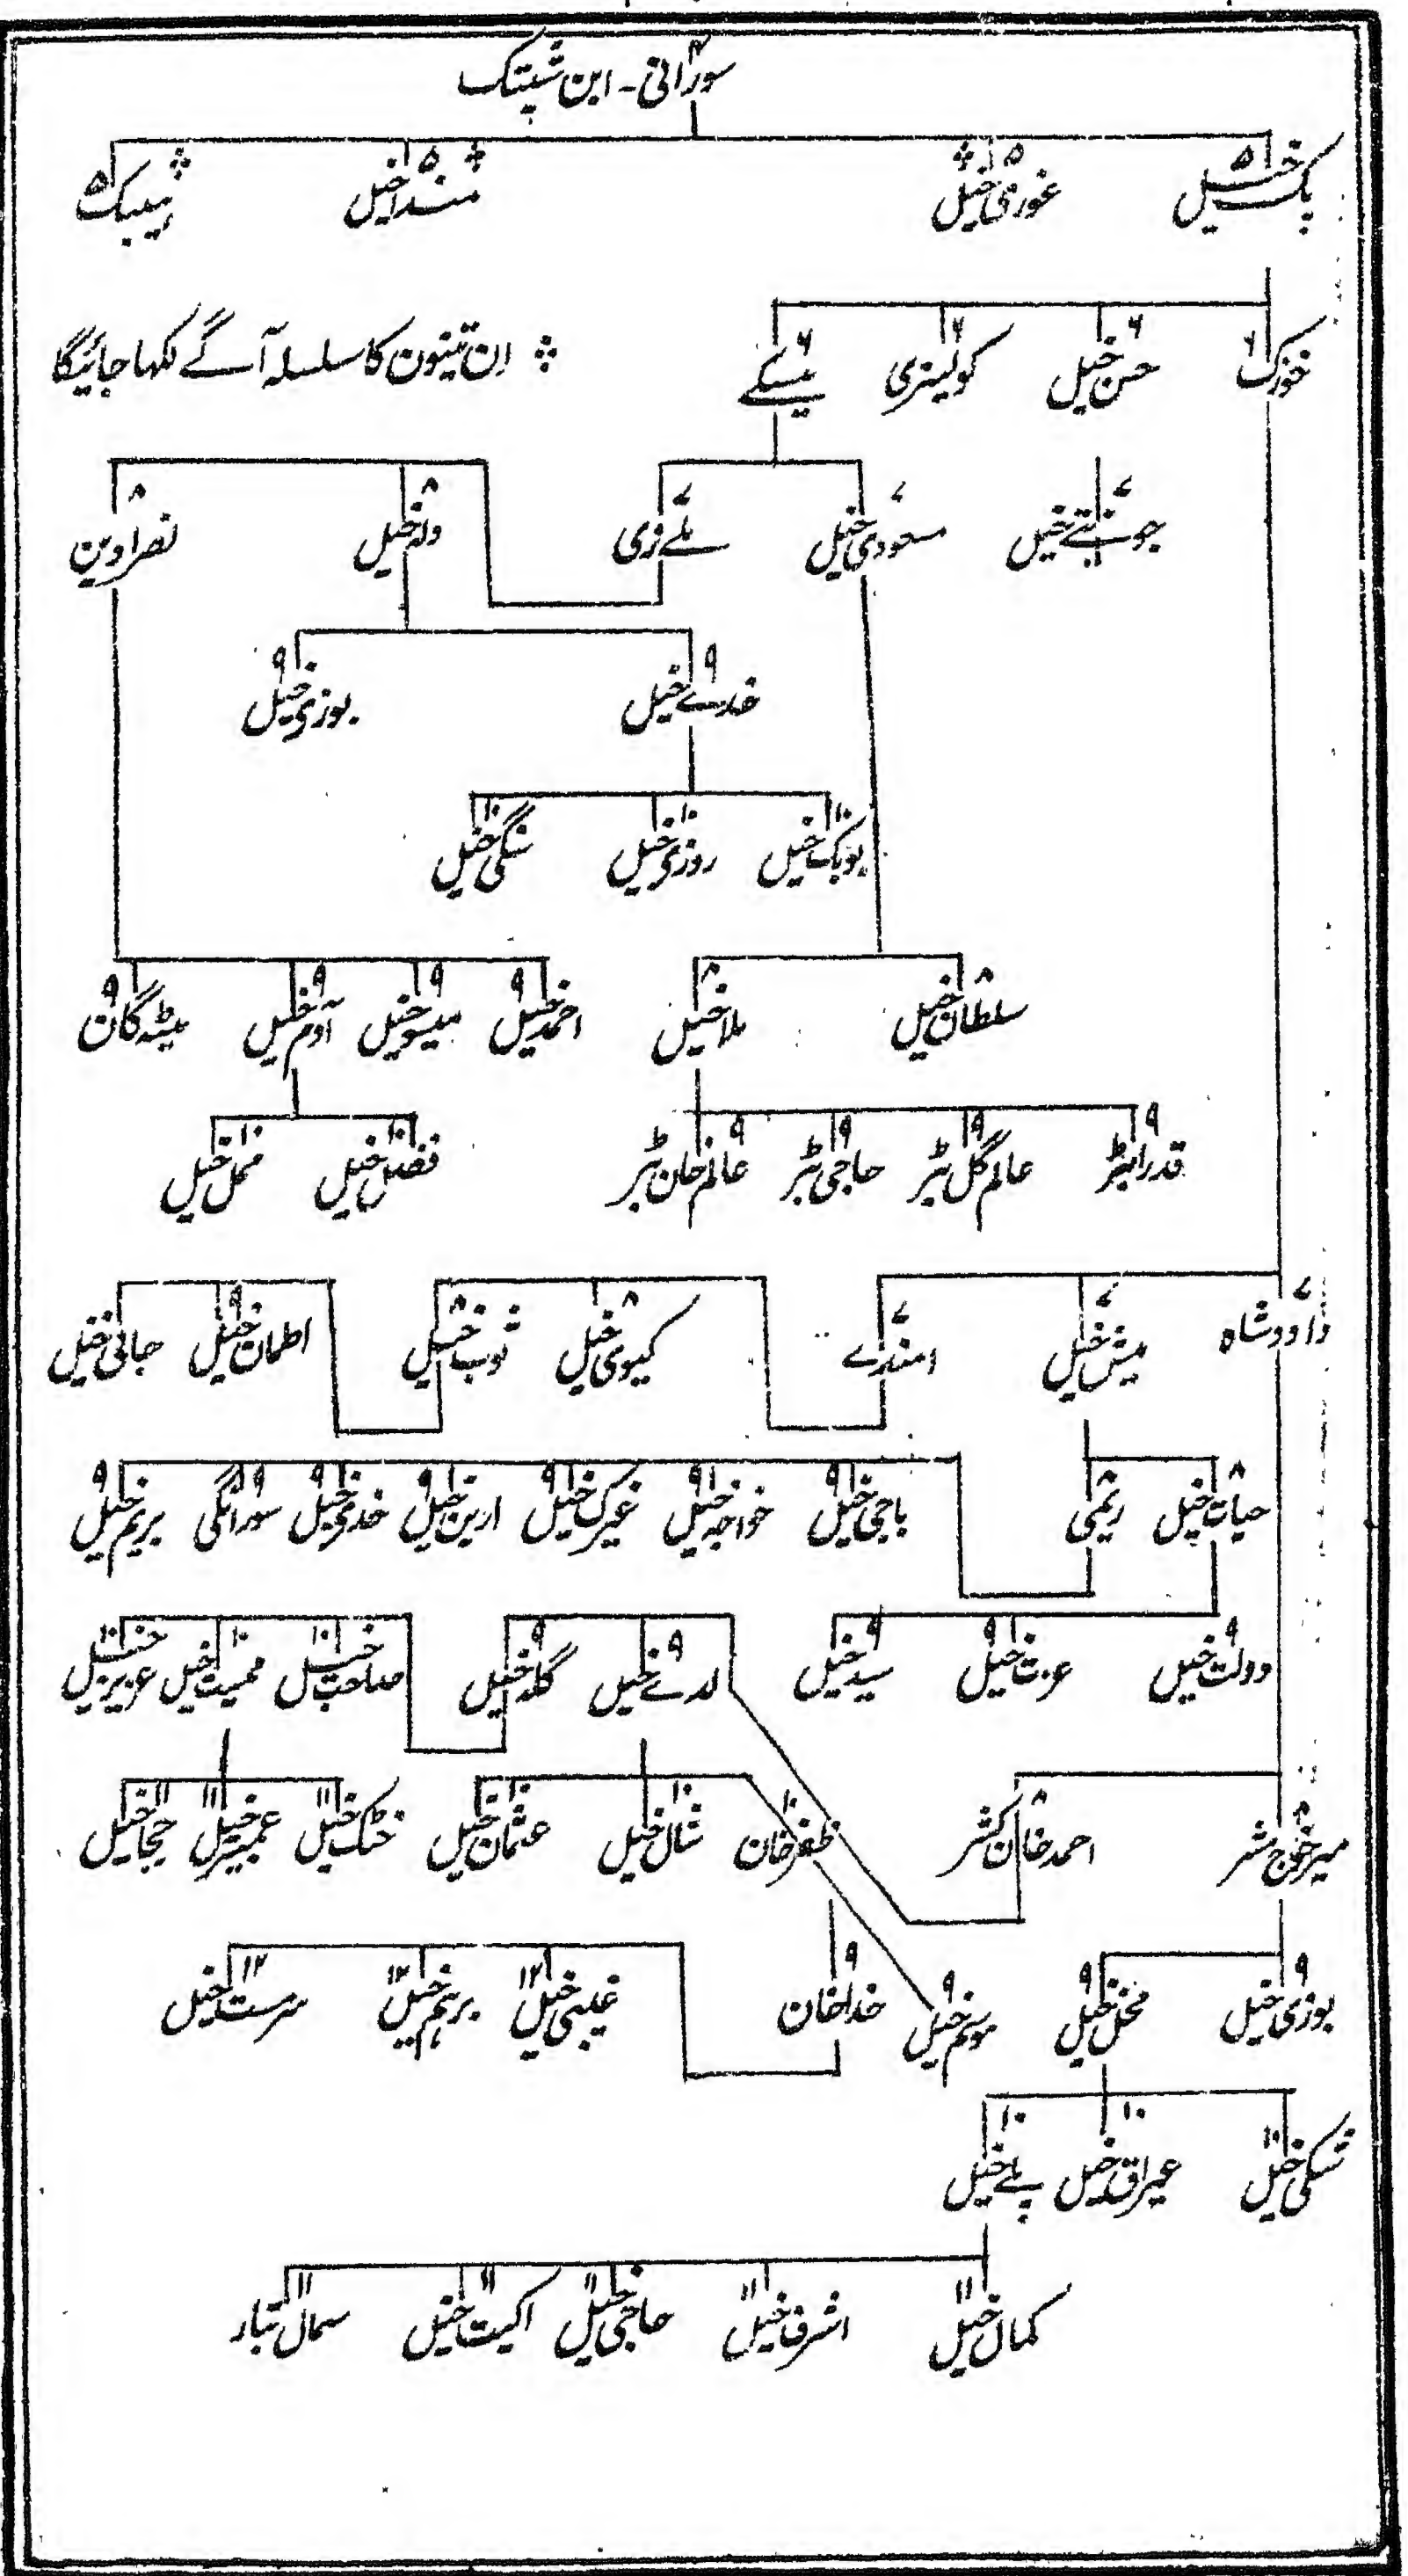 سورانی - ابن شیتک ۴
پک خیل ۵ غوری خیل ۵ ⁘ مندا خیل ۵ ⁘ ۵ ⁘
خوزک ۶ حسن خیل ۶ ۶ ۶ ⁘ اِن تینون کا سلسلہ آگے لکہا جائیگا
۷ مسعودی خیل ۷ ملے زی ۷ ولہ خیل ۸ نصرادین ۸
خدرے خیل ۹ بوزی خیل ۹
بوبک خیل ۱۰ روزی خیل ۱۰ سنگی خیل ۱۰
سلطان خیل ۸ ملا خیل ۸ احمد خیل ۹ میسو خیل ۹ آدم خیل ۹ میٹہ گان ۹
قدرا ٹبر ۹ عالم گل ٹبر ۹ حاجی ٹبر ۹ عالم خان ٹبر ۹ فضل خیل ۱۰ ممل خیل ۱۰
داود شاہ ۷ میش خیل ۷ امندے ۷ کیوی خیل ۸ ثوب خیل ۸ اطمان خیل ۹ جانی خیل
حیات خیل ۸ ریمی باجی خیل ۹ خواجہ خیل ۹ غیرک خیل ۹ ارین خیل ۹ خدری خیل ۹ سورانگی ۹ بریم خیل ۹
دولت خیل ۹ عزت خیل ۹ سید خیل ۹ لدرے خیل ۹ گلہ خیل ۹ صاحب خیل ۱۰ ممیت خیل ۱۰ عزیر خیل ۱۰
میر خوج مشر ۸ احمد خان کشر ۸ ظفر خان ۱۰ شال خیل ۱۰ عثمان خیل ۱۰ خٹک خیل ۱۱ عمبیر خیل ۱۱ ججا خیل ۱۱
بوزی خیل ۹ مخل خیل ۹ موسم خیل ۹ خدا خان ۹ غیبی خیل ۱۲ برہیم خیل ۱۲ سرمست خیل ۱۲
سکی خیل ۱۰ عیراق خیل ۱۰ پلے خیل ۱۰
کمال خیل ۱۱ اشرف خیل ۱۱ حاجی خیل ۱۱ اکیت خیل ۱۱ سمال تبار ۱۱